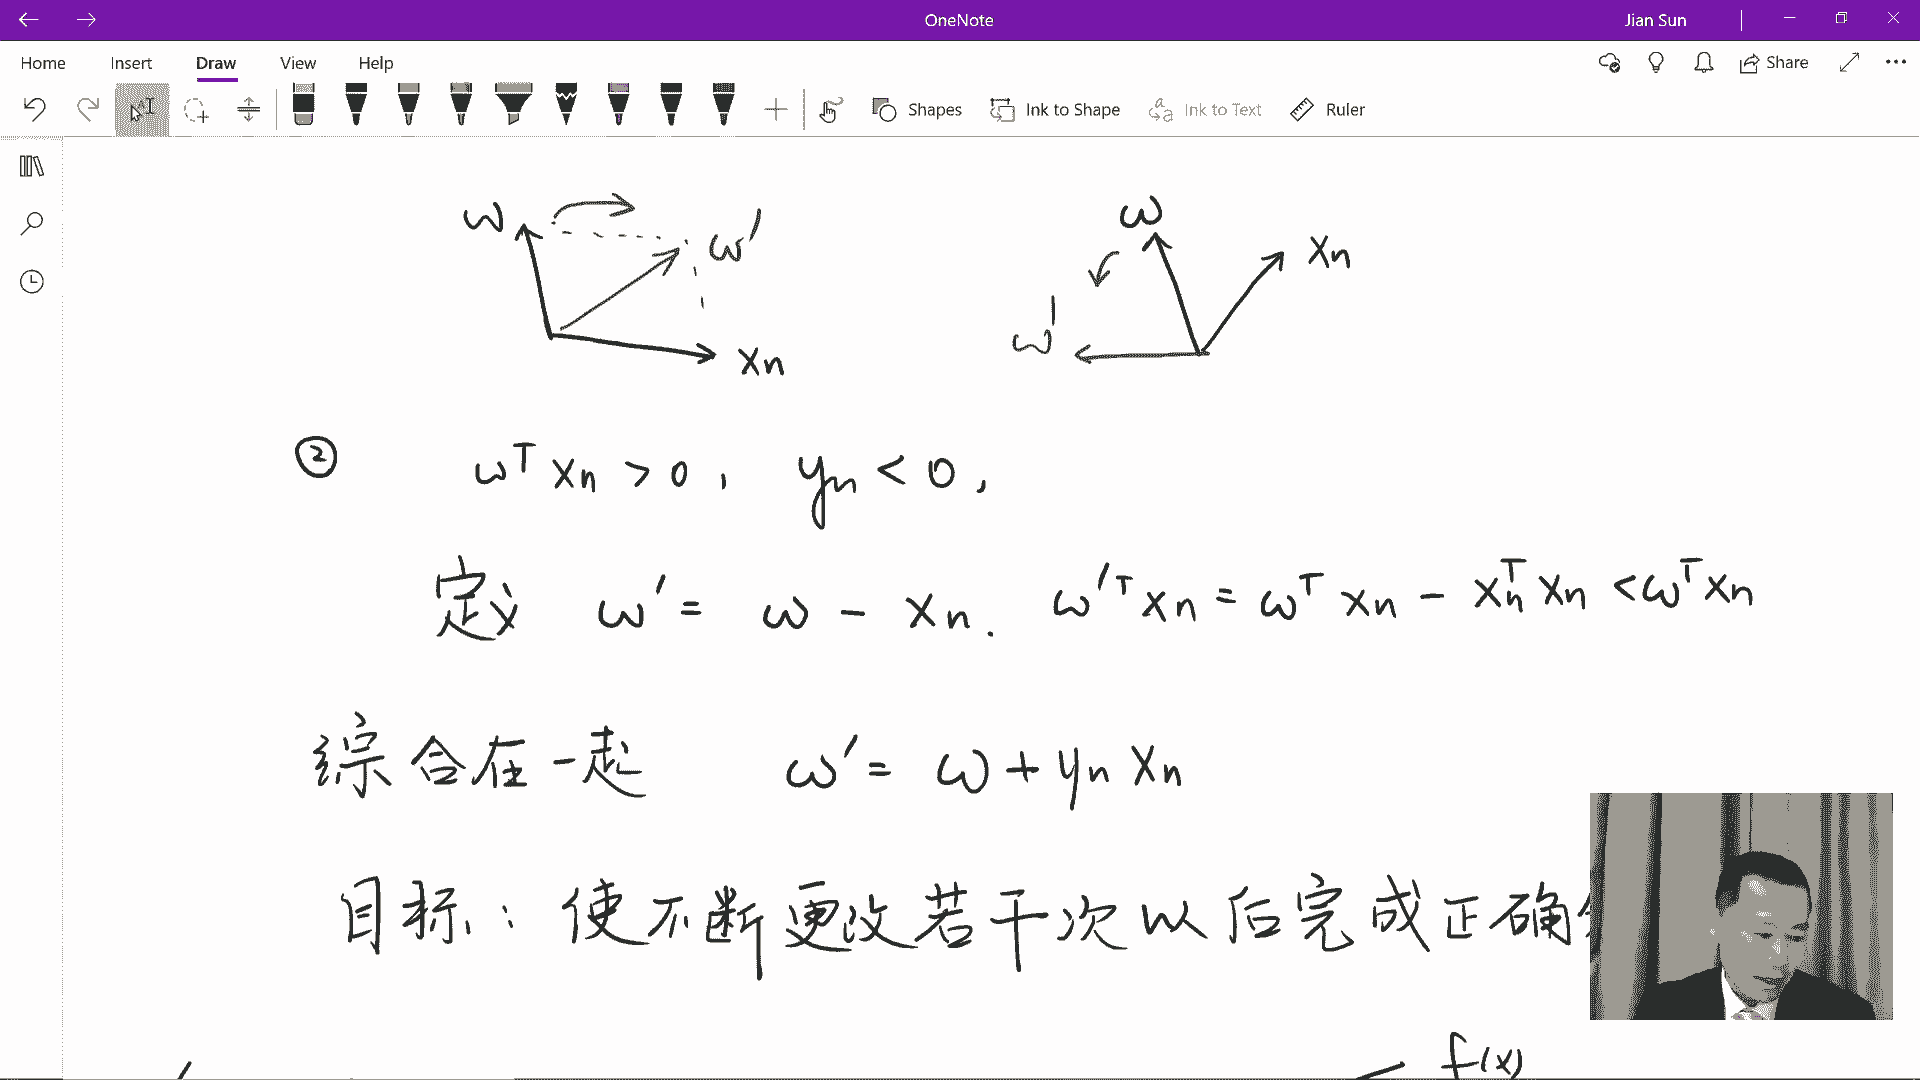 OneNote
Jian Sun
Home Insert Draw View Help
Share
Shapes Ink to Shape Ink to Text Ruler
ω ω' xn
ω xn ω'
② ωᵀxn > 0, yn < 0,
定义 ω' = ω - xn. ω'ᵀxn = ωᵀxn - xnᵀxn < ωᵀxn
综合在一起 ω' = ω + yn xn
目标: 使不断更改若干次以后完成正确
f(x)